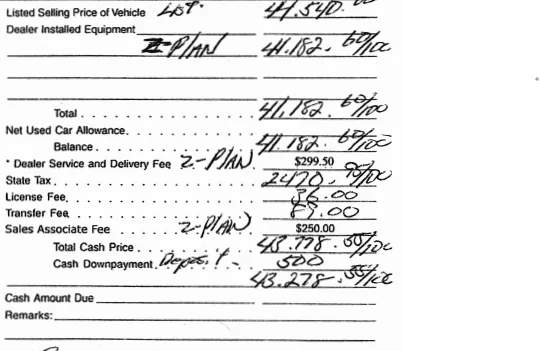 Listed Selling Price of Vehicle List 41,540.00
Dealer Installed Equipment
Z-PLAN 41.182. 60/100
Total 41,182. 60/100
Net Used Car Allowance
Balance 41.182. 60/100
* Dealer Service and Delivery Fee Z-PLAN $299.50
State Tax 2470. 95/100
License Fee 36.00
Transfer Fee
Sales Associate Fee Z-PLAN $250.00
Total Cash Price 43.778. 55/100
Cash Downpayment Deposit - 500
43.278. 55/100
Cash Amount Due
Remarks: